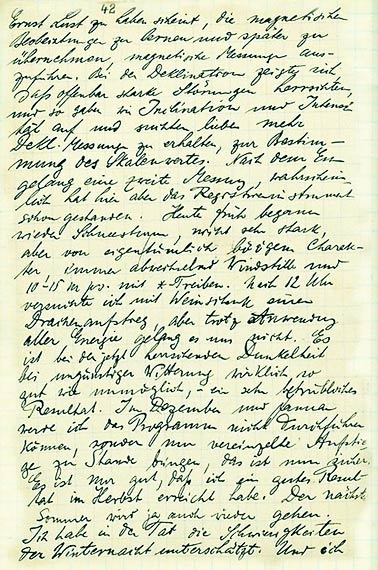 42
Ernst Lust zu haben scheint, die magnetischen
Beobachtungen zu lernen und später zu
übernehmen, magnetische Messungen aus-
zuführen. Bei der Deklination zeigte sich
daß offenbar starke Störungen herrschten,
und so gaben wir Inclination und Intensi
tät auf und suchten lieber mehr
Dekl. Messungen zu erhalten, zur Bestim-
mung des Skalenwertes. Nach dem Es
gelang eine zweite Messung, wahrschein-
lich hat hier aber das Registrierinstrument
schon gestanden. Heute früh begann
wieder Schneesturm, nicht sehr stark,
aber von eigentümlich böigem Charak-
ter immer abwechselnd Windstille und
10-15 m p. s. mit * Treiben. Nach 12 Uhr
versuchte ich mit Weinschenk einen
Drachenaufstieg, aber trotz Anwendung
aller Energie gelang es uns nicht. Es
ist bei der jetzt herrschenden Dunkelheit
bei ungünstiger Witterung wirklich so
gut wie unmöglich, - ein sehr betrübliches
Resultat. Im Dezember und Januar
werde ich das Programm nicht durchführen
können, sondern nur vereinzelte Aufstie
ge zu Stande bringen, das ist nun sicher.
Es ist nur gut, daß ich ein gutes Resul
tat im Herbst erreicht habe. Der nächste
Sommer wird ja auch wieder gehen.
Ich habe in der Tat die Schwierigkeiten
der Winternacht unterschätzt. Und ich